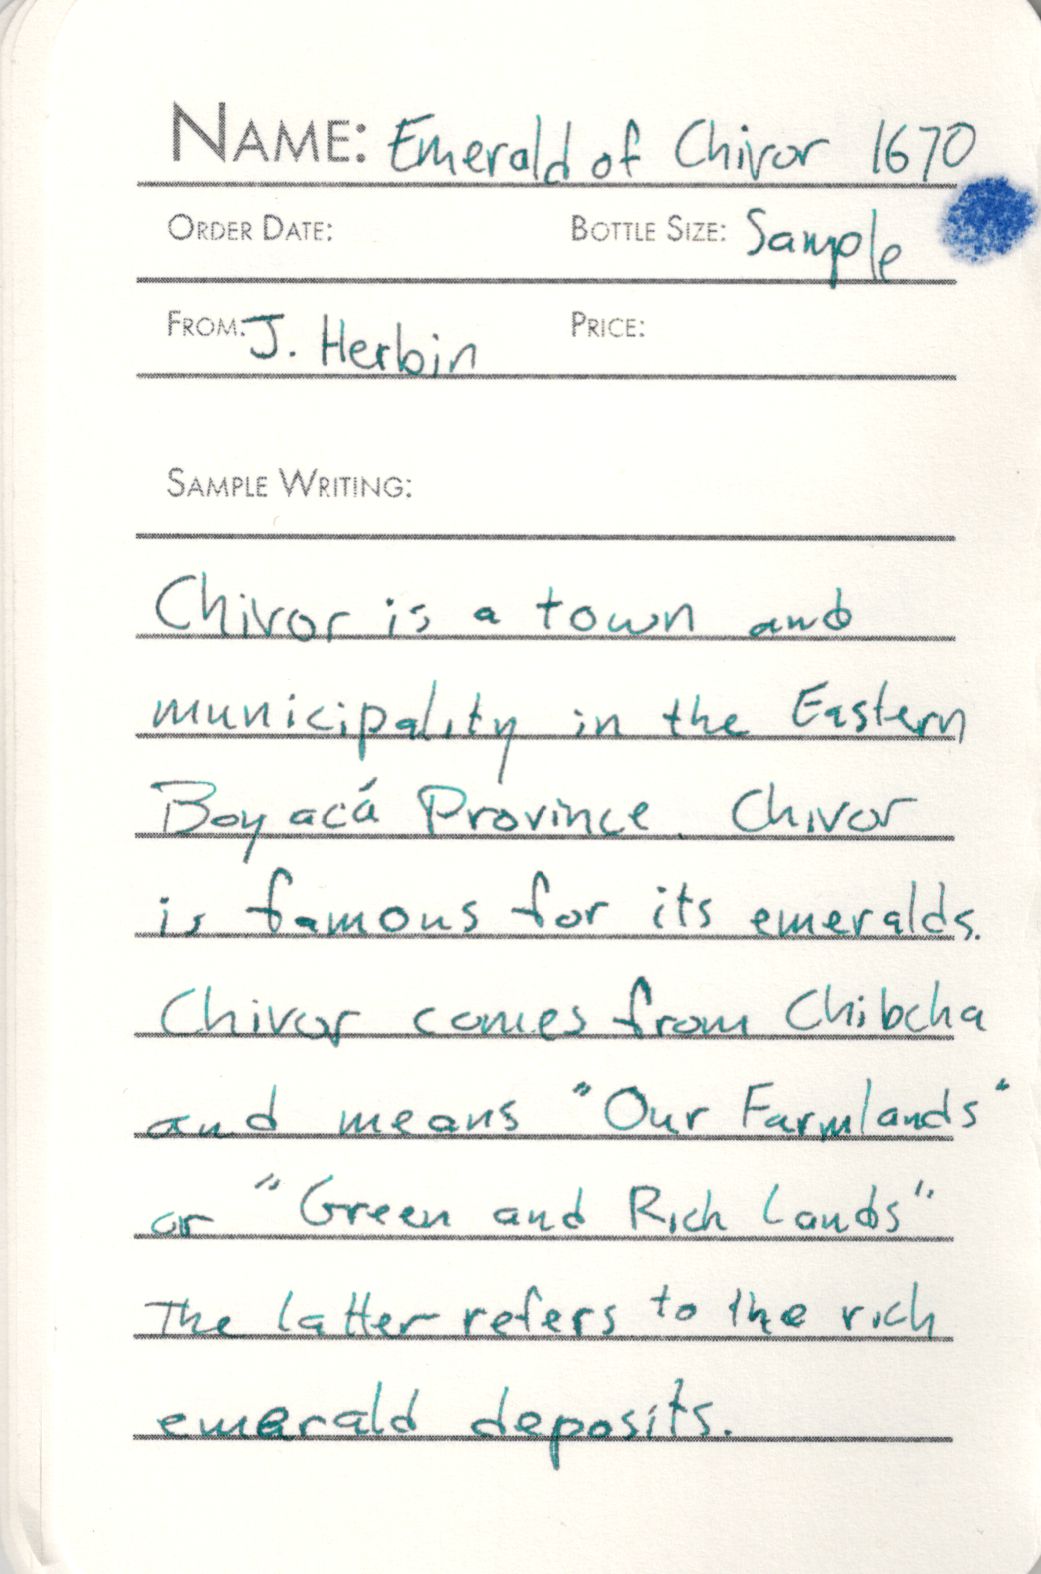 NAME: Emerald of Chivor 1670
ORDER DATE: BOTTLE SIZE: Sample
FROM: J. Herbin PRICE:
SAMPLE WRITING:
Chivor is a town and
municipality in the Eastern
Boyacá Province. Chivor
is famous for its emeralds.
Chivor comes from Chibcha
and means "Our Farmlands"
or "Green and Rich Lands"
The latter refers to the rich
emerald deposits.